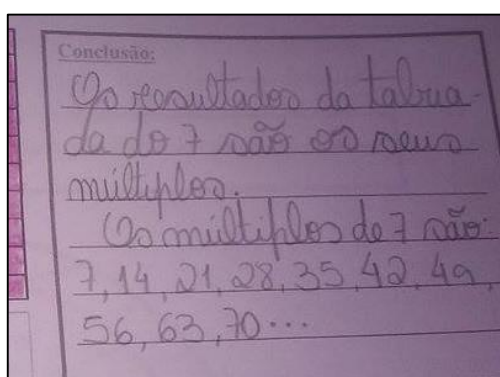 Conclusão:
Os resultados da tabua-
da do 7 são os seus
múltiplos.
Os múltiplos de 7 são:
7, 14, 21, 28, 35, 42, 49,
56, 63, 70...